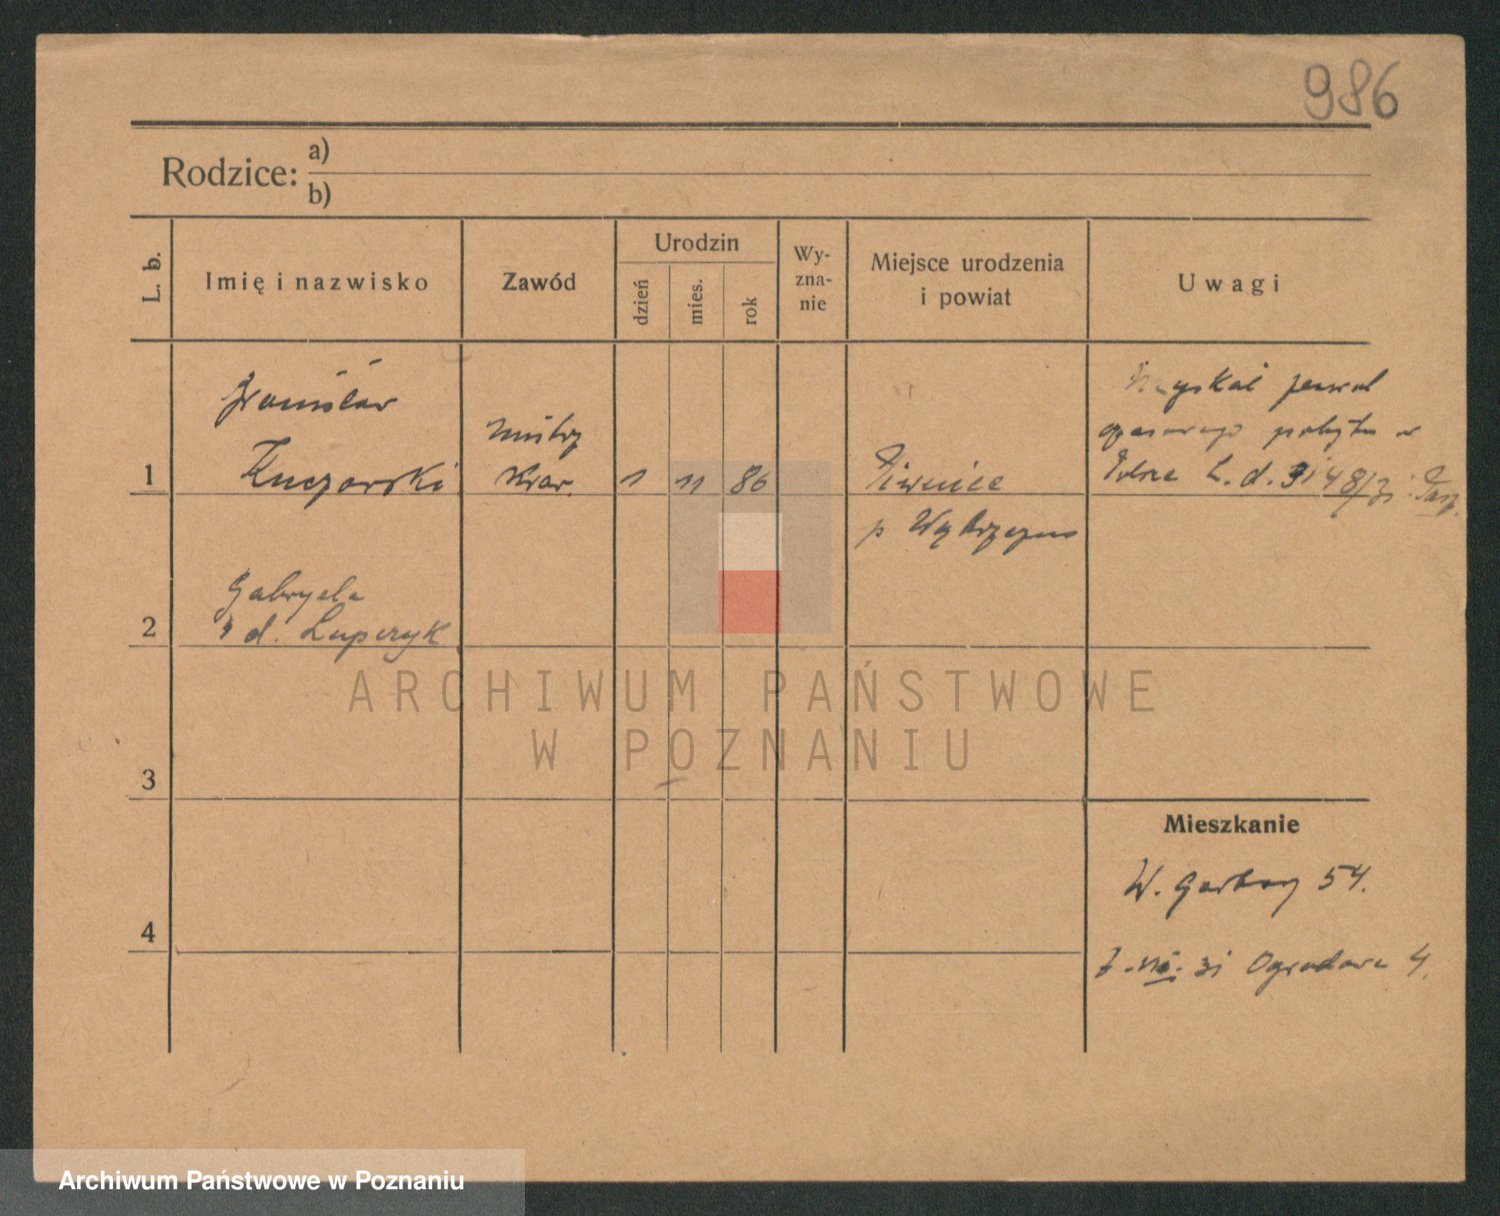 986
Rodzice: a)
b)
L. b.
Imię i nazwisko
Zawód
Urodzin
dzień
mies.
rok
Wy-
zna-
nie
Miejsce urodzenia
i powiat
Uwagi
Stanisław
1 Kuczorski
mistrz
kraw.
1 11 86
Piwnice
p Wąbrzeźno
Uzyskał zezwol
czasowego pobytu w
Polsce L. d.
Gabryela
2 d. Luperzyk
3
4
Mieszkanie
W. Garbary 54.
31 Ogrodowa 4.
ARCHIWUM PAŃSTWOWE
W POZNANIU
Archiwum Państwowe w Poznaniu